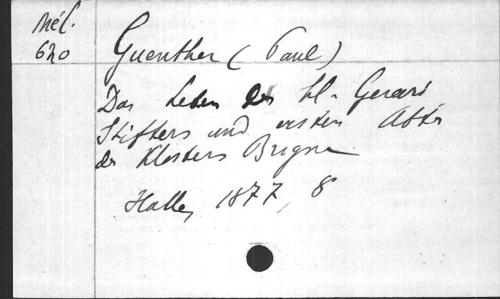 Mél.
620
Guenther (Paul)
Das Leben des hl. Gerard
Stifters und ersten Abts
des Klosters Brogne
Halle, 1877, 8°